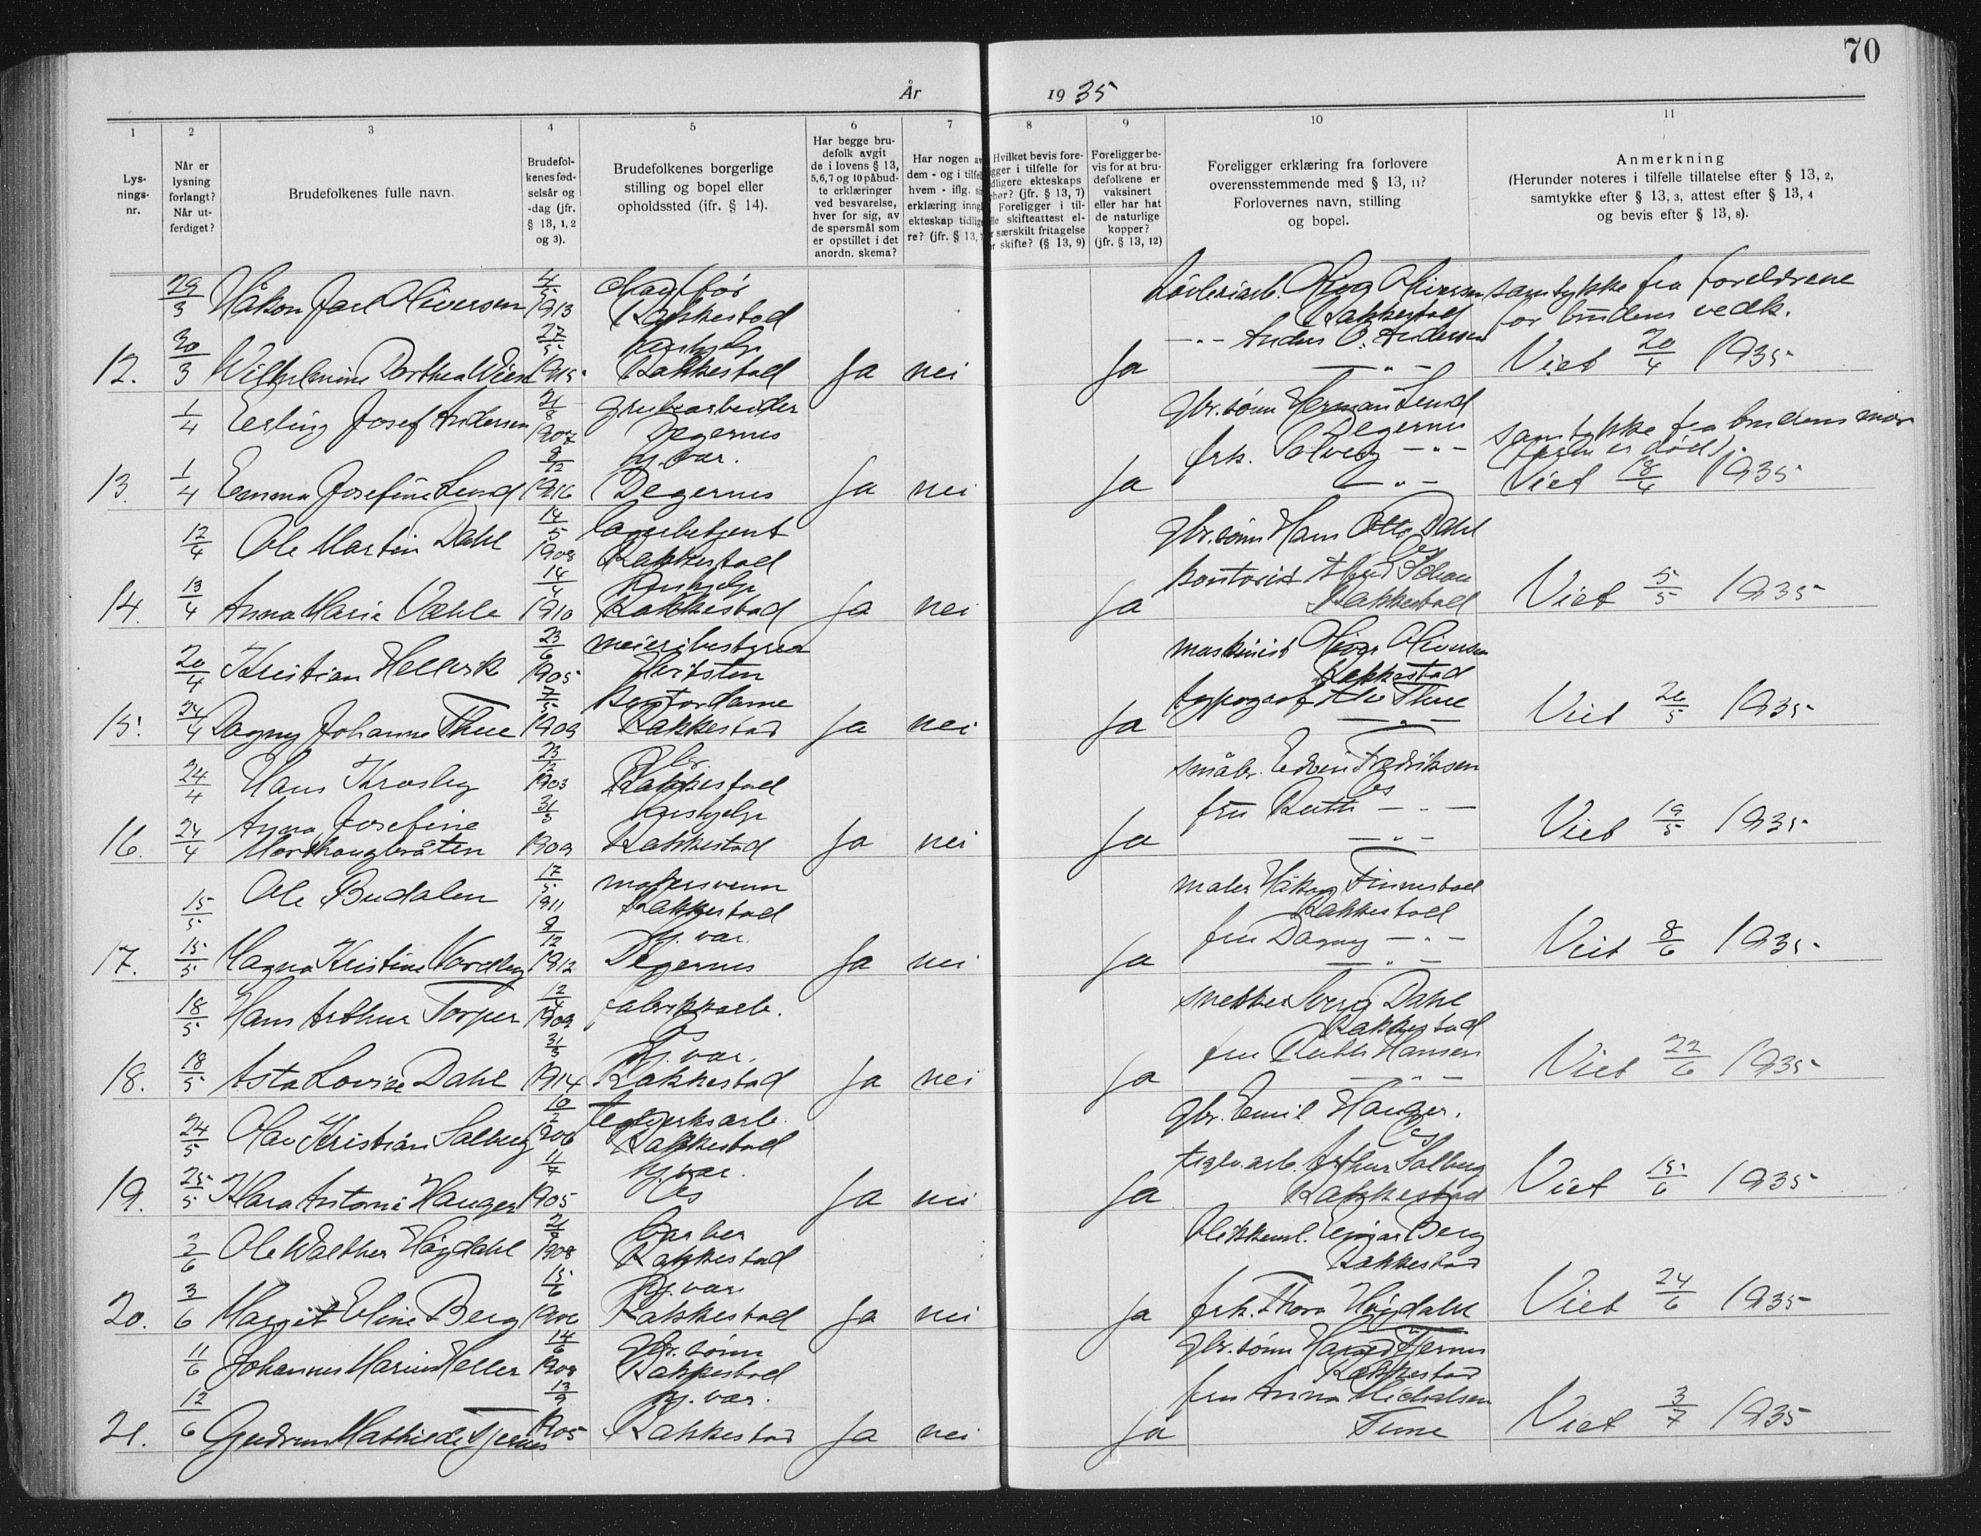 70
År 1935
1
2
3
4
5
6
7
8
9
10
11
Lys-
nings-
nr.
Når er
lysning
forlangt?
Når ut-
ferdiget?
Brudefolkenes fulle navn.
Brudefol-
kenes fød-
selsår og
-dag (jfr.
§ 13, 1, 2
og 3).
Brudefolkenes borgerlige
stilling og bopel eller
opholdssted (ifr. § 14).
Har begge bru-
defolk avgit
de i lovens § 13,
5, 6, 7 og 10 påbud-
te erklæringer
ved besvarelse,
hver for sig, av
de spørsmål som
er opstillet i det
anordn. skema?
Har nogen av
dem - og i tilfel
hvem - iflg. si
erklæring inng
ekteskap tidlig
re? (jfr. § 13,
Hvilket bevis fore-
gger i tilfelle for
dligere ekteskaps
phør? (jfr. § 13, 7)
Foreligger i til-
lle skifteattest el-
r særskilt fritagelse
r skifte? (§ 13, 9)
Foreligger be-
vis for at bru-
defolkene er
vaksinert
eller har hat
de naturlige
kopper?
(jfr. § 13, 12)
Foreligger erklæring fra forlovere
overensstemmende med § 13, 11?
Forlovernes navn, stilling
og bopel.
Anmerkning
(Herunder noteres i tilfelle tillatelse efter § 13, 2,
samtykke efter § 13, 3, attest efter § 13, 4
og bevis efter § 13, 8).
29/3 Håkon Jarl Oliversen 4/5 1913
Rakkestad
Oliversen
Rakkestad
samtykke fra foreldrene
for brudens vedk.
12. 30/3 Wilhelmine Dorthea Wiese 27/5 1915
hushjelp
Rakkestad Ja nei Ja
- " - Anders O. Andersen
- " -
Viet 20/4 1935
1/4 Erling Josef Andersen 21/8 1907
grubearbeider
Degernes
gbr.sønn Herman Lund
Degernes
samtykke fra brudens mor
(faren er død).
13. 1/4 Emma Josefine Lund 8/12 1916
hj.vær.
Degernes Ja nei Ja
frk. Solveig - " -
- " -
Viet 18/4 1935
12/4 Ole Martin Dahl 14/5 1908
Rakkestad
gbr.sønn Hans Otto Dahl
14. 13/4 Anna Marie Væhle 14/4 1910
hushjelp
Rakkestad Ja nei Ja
kontorist
Rakkestad
Viet 5/5 1935
20/4 Kristian Hellvik 23/6 1905
meieribestyrer
maskinist Oliversen
Rakkestad
15. 24/4 Dagny Johanne Thue 7/5 1909
kontordame
Rakkestad Ja nei Ja
typograf Thue
- " -
Viet 26/5 1935
24/4 Hans Krosby 1903
gbr.
Rakkestad
småbr. Edvin Fredriksen
16. 24/4 Anna Josefine
31/3 1909
hushjelp
Rakkestad Ja nei Ja
fru Ruth - " -
- " -
Viet 19/5 1935
15/5 Ole Budalen 17/5 1911
malersvenn
Rakkestad
maler Håkon Finnestad
Rakkestad
17. 15/5 Magna Kristine Nordby 9/12 1912
hj.vær.
Degernes Ja nei Ja
fru Dagny - " -
- " -
Viet 8/6 1935
18/5 Hans Arthur Torper 1909
fabrikkarb.
snekker Dahl
Rakkestad
18. 18/5 Asta Lovise Dahl 31/3 1914
hj.vær.
Rakkestad Ja nei Ja
fru Ruth Hansen
- " -
Viet 22/6 1935
24/5 Olav Kristian Solberg 10/2 1906
Teglverksarb.
Rakkestad
gbr. Emil Hauger.
19. 25/5 Klara Antonie Hauger 11/7 1905
hj.vær.
Ja nei Ja
teglv.arb. Arthur Solberg
Rakkestad
Viet 15/6 1935
3/6 Ole Walther Høgdahl 1908
barber
Rakkestad
blikkensl. Einar Berg
Rakkestad
20. 3/6 Margit Eline Berg 15/6 1906
hj.vær.
Rakkestad Ja nei Ja
frk. Thora Høgdahl
Viet 24/6 1935
11/6 Johannes Marius Heller 14/6 1908
gbr.sønn
Rakkestad
gbr.sønn Tjernes
Rakkestad
21. 12/6 Gudrun Mathilde Tjernes 13/9 1905
hj.vær.
Rakkestad Ja nei Ja
fru Anna Michalsen
Viet 3/7 1935